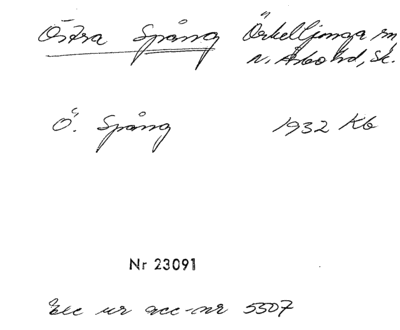 Östra Spång Örkelljunga sn,
N. Åsbo hd, Sk.
Ö. Spång 1932 Kb
Nr 23091
Exc ur acc-nr 5507